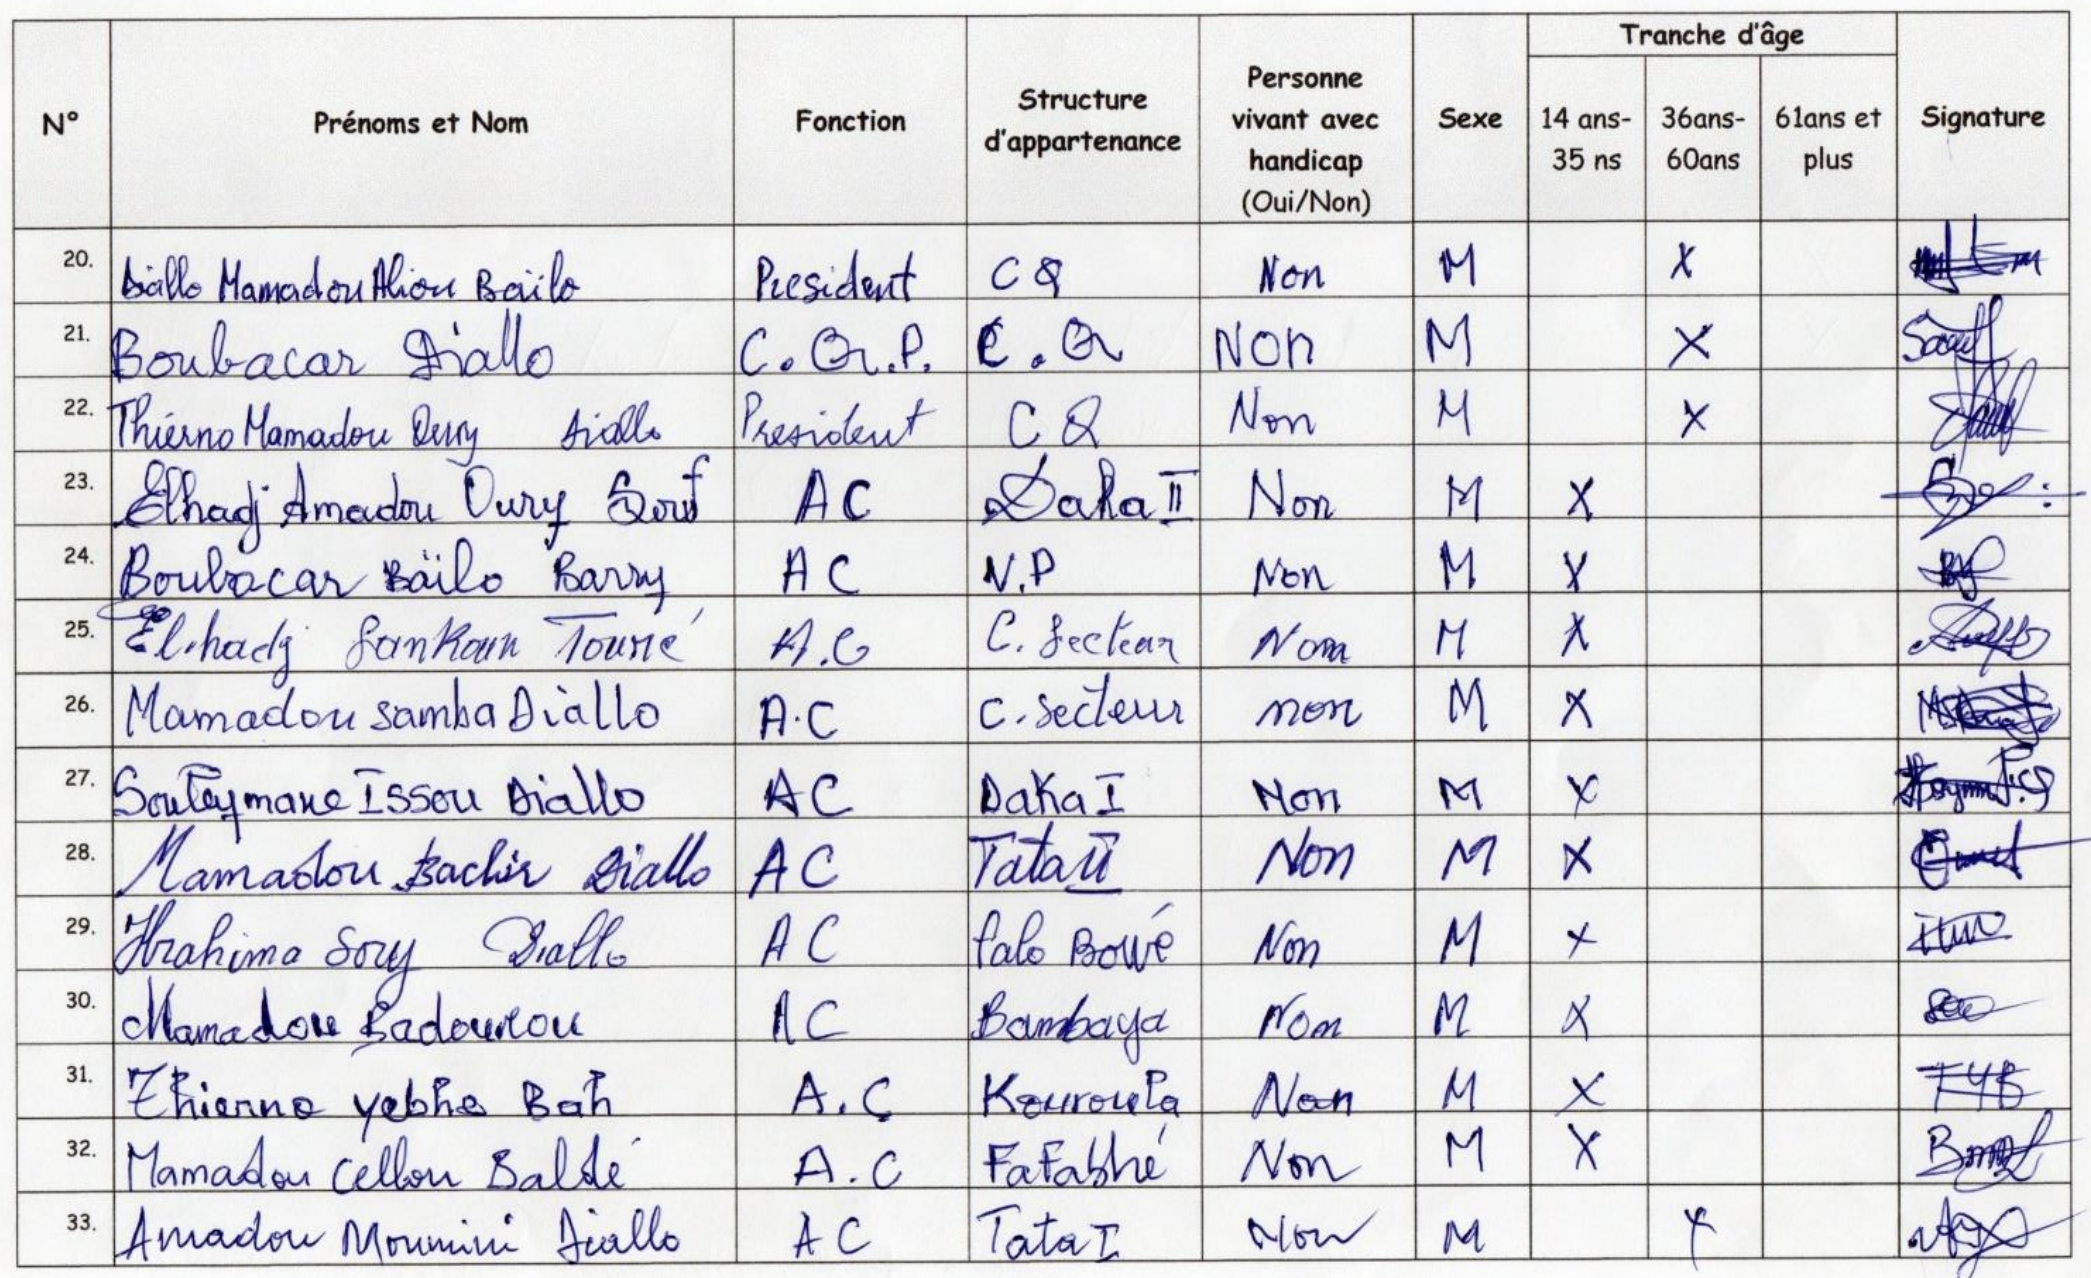 Tranche d'âge
N° Prénoms et Nom Fonction Structure d'appartenance Personne vivant avec handicap (Oui/Non) Sexe 14 ans-35 ns 36ans-60ans 61ans et plus Signature
20. Diallo Mamadou Aliou Baïlo President C Q Non M X
21. Boubacar Diallo C.Q.P. C.Q NON M X
22. Thierno Mamadou Oury Diallo President C Q Non M X
23. Elhadj Amadou Oury Sow AC Daka II Non M X
24. Boubacar Baïlo Barry AC N.P Non M X
25. Elhadj Sankoun Touré A.C C. Secteur Non M X
26. Mamadou samba Diallo A.C C. secteur non M X
27. Souleymane Issou Diallo AC Daka I Non M X
28. Mamadou Bachir Diallo AC Tata II Non M X
29. Ibrahima Sory Diallo AC Palo Bowé Non M X
30. Mamadou Badourou AC Bambaya Non M X
31. Thierno yebhe Bah A.C Kouroula Non M X TYB
32. Mamadou Cellou Baldé A.C Fafabhé Non M X
33. Amadou Moumini Diallo AC Tata I Non M X